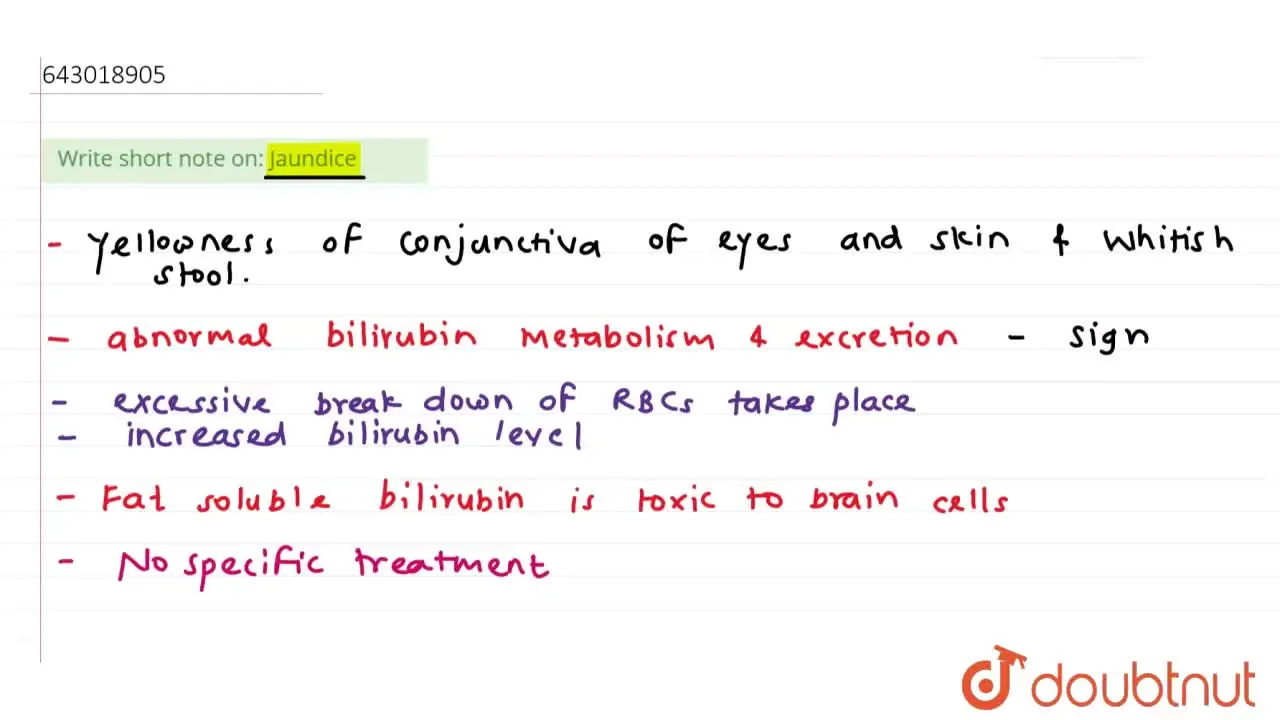 643018905
Write short note on: Jaundice
- Yellowness of conjunctiva of eyes and skin & whitish
stool.
- abnormal bilirubin metabolism & excretion - sign
- excessive break down of RBCs takes place
- increased bilirubin level
- Fat soluble bilirubin is toxic to brain cells
- No specific treatment
doubtnut